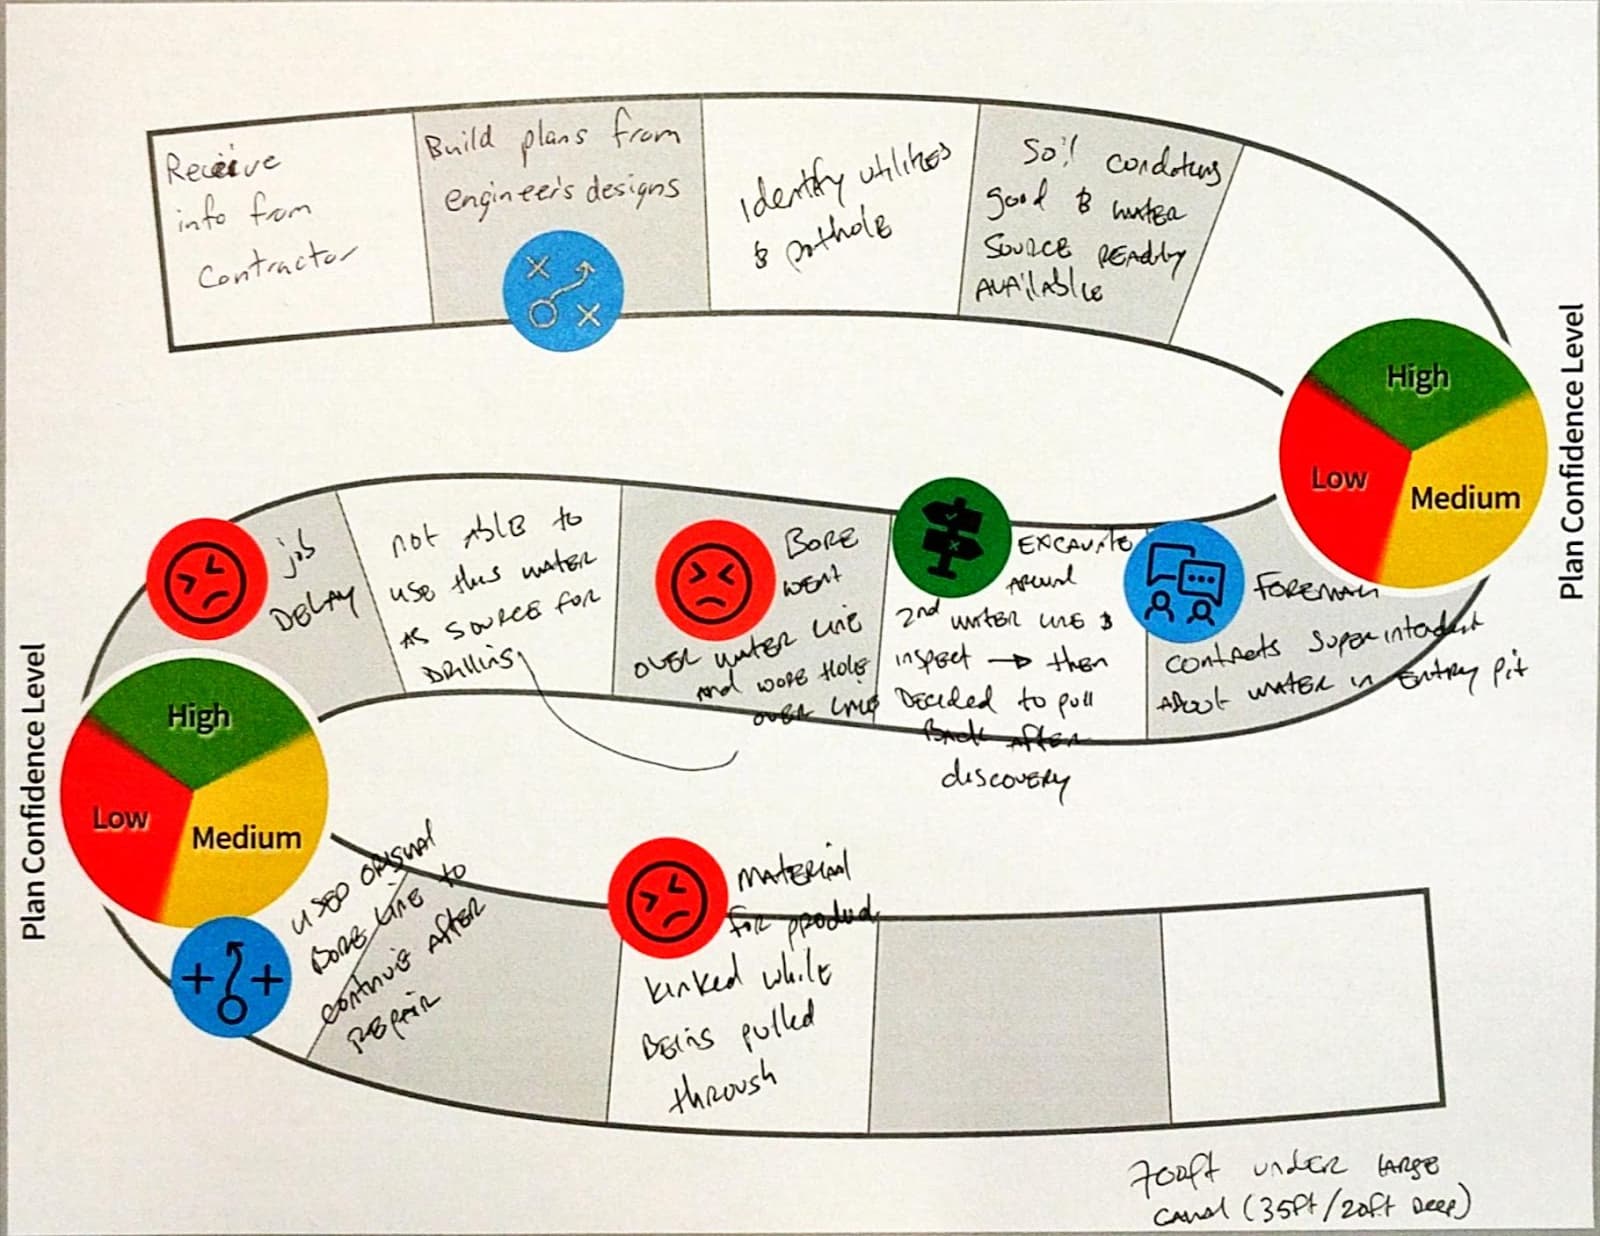 Receive
info from
Contractor
Build plans from
engineer's designs
Identify utilities
& pothole
Soil conditions
good & water
source readily
available
Plan Confidence Level
High
Low
Medium
Foreman
contacts superintendent
about water in entry pit
Excavate
around
2nd water line &
inspect → then
Decided to pull
Back after
discovery
Bore
went
over water line
and wore hole
over line
not able to
use this water
as source for
Drilling
job
Delay
Plan Confidence Level
High
Low
Medium
used original
Bore line to
continue after
repair
Material
for product
kinked while
Being pulled
through
700ft under large
canal (35ft/20ft Deep)